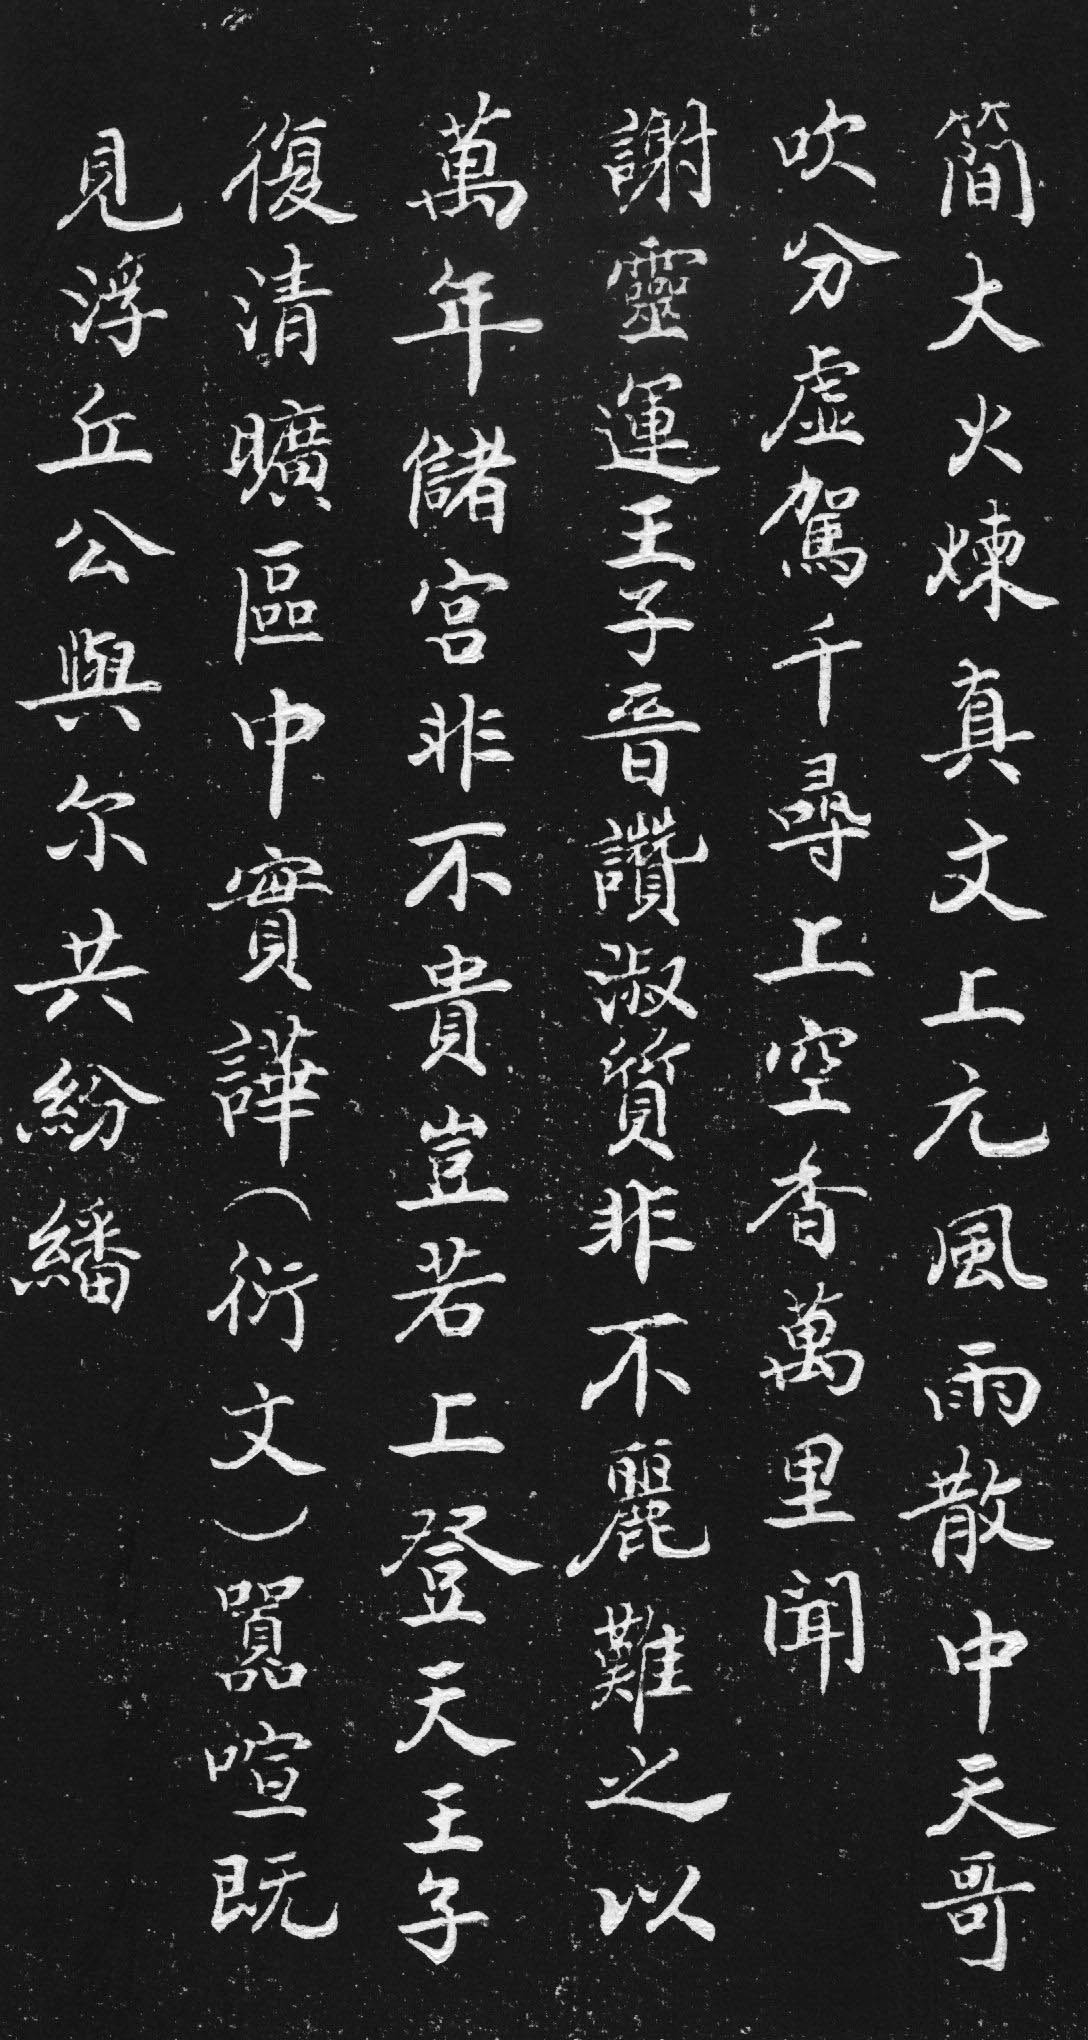 簡大火煉真文上元風雨散中天哥
吹分虛駕千尋上空香萬里聞
謝靈運王子晉讚淑質非不麗難之以
萬年儲宮非不貴豈若上登天王子
復清曠區中實譁（衍文）囂喧既
見浮丘公與尔共紛繙